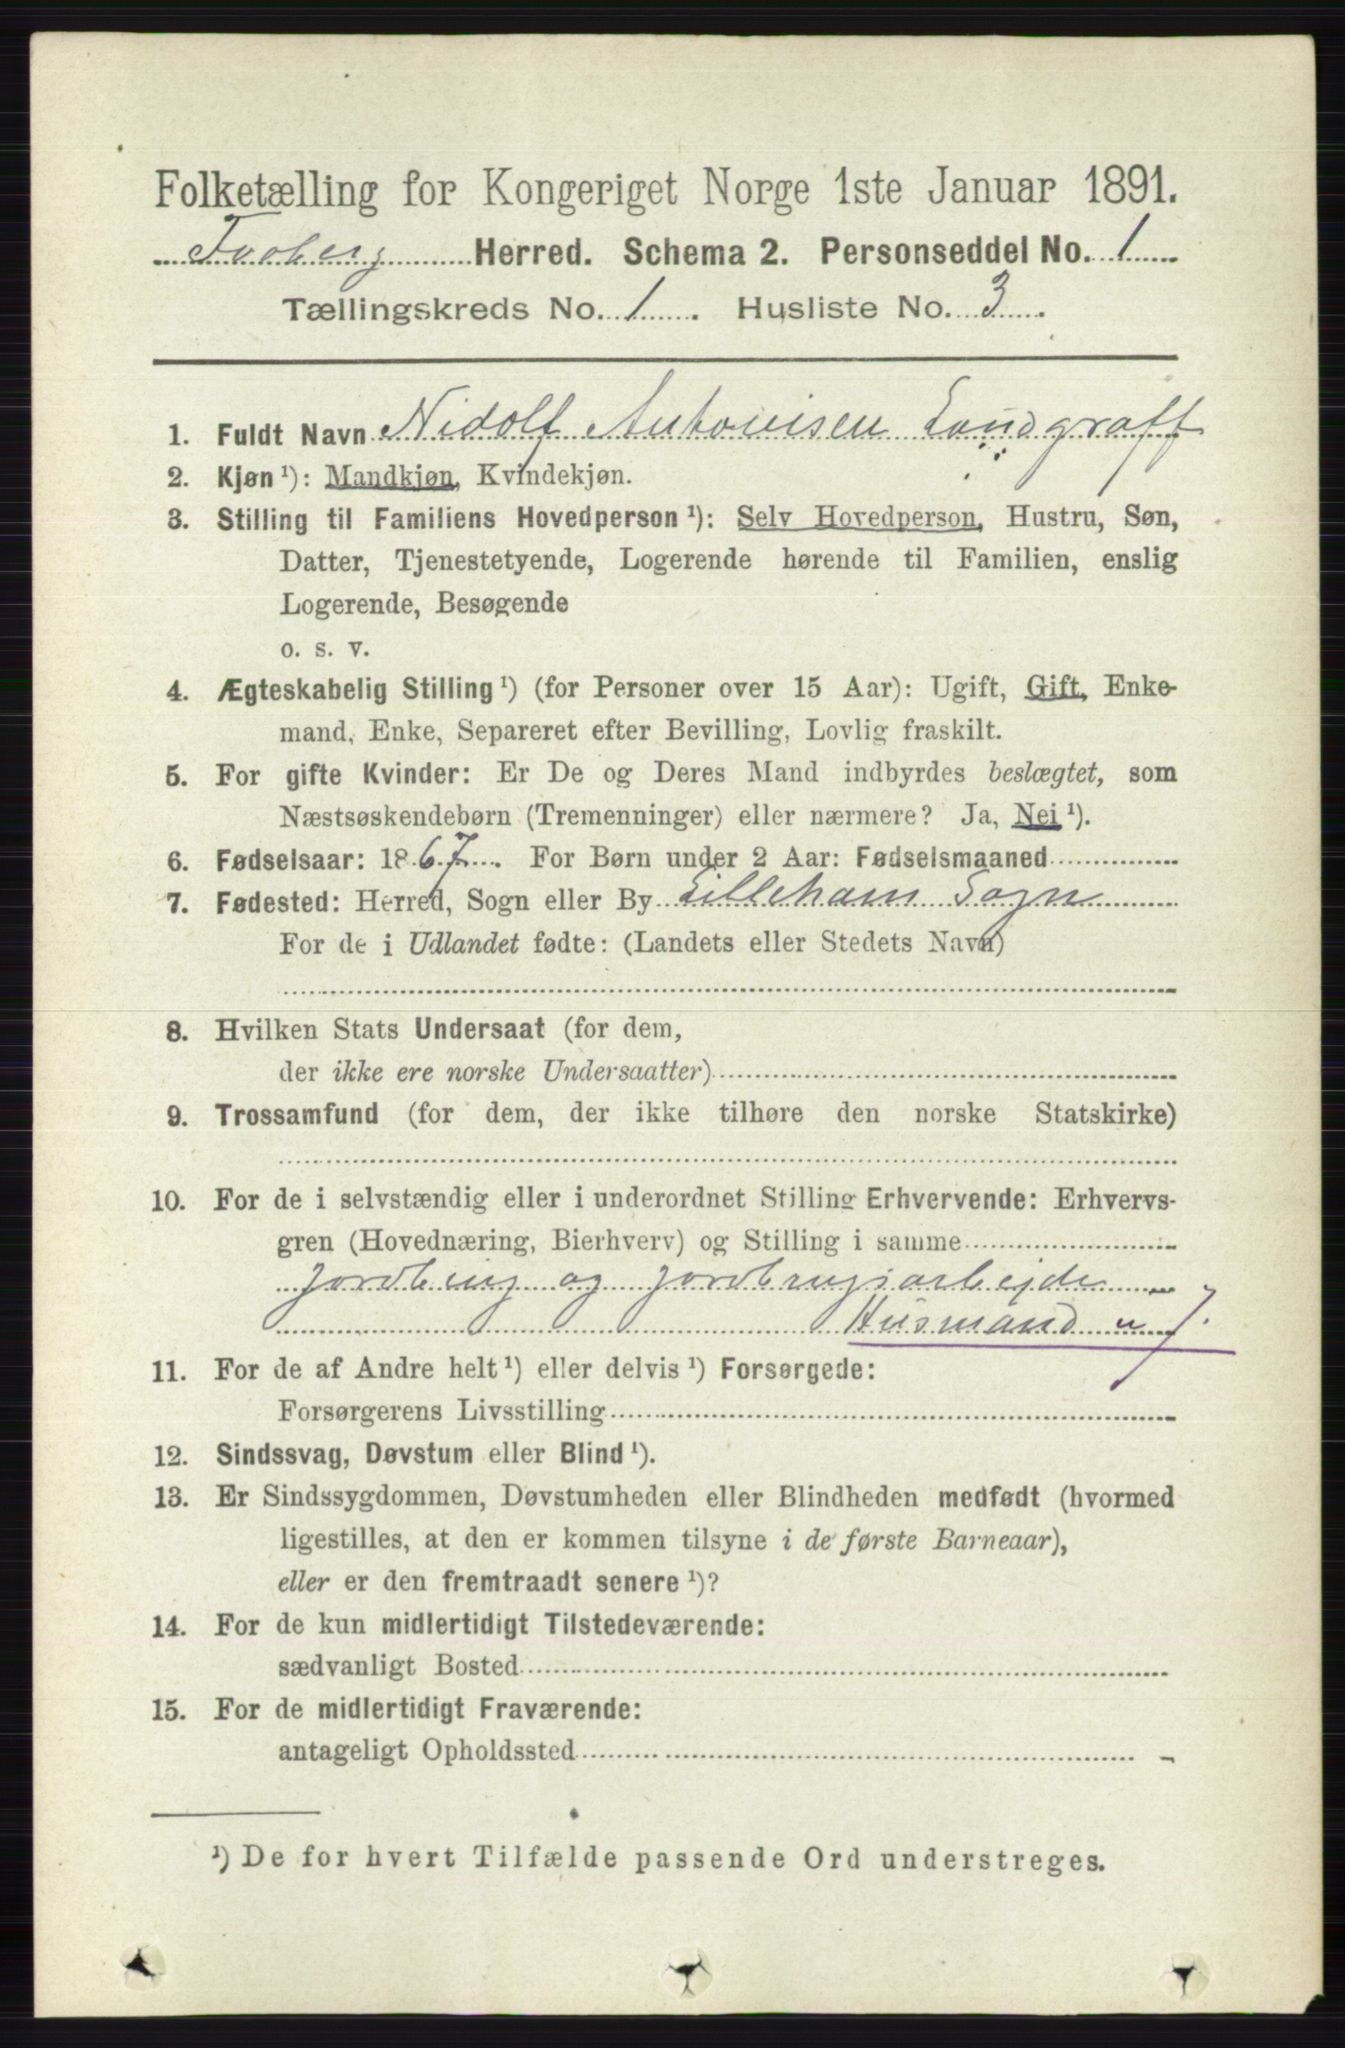 Folketælling for Kongeriget Norge 1ste Januar 1891.
Faaberg Herred. Schema 2. Personseddel No. 1
Tællingskreds No. 1. Husliste No. 3.
1. Fuldt Navn Nidolf Antonisen Landgraff
2. Kjøn ¹): Mandkjøn, Kvindekjøn.
3. Stilling til Familiens Hovedperson ¹): Selv Hovedperson, Hustru, Søn,
Datter, Tjenestetyende, Logerende hørende til Familien, enslig
Logerende, Besøgende
o. s. v.
4. Ægteskabelig Stilling ¹) (for Personer over 15 Aar): Ugift, Gift, Enke-
mand, Enke, Separeret efter Bevilling, Lovlig fraskilt.
5. For gifte Kvinder: Er De og Deres Mand indbyrdes beslægtet, som
Næstsøskendebørn (Tremenninger) eller nærmere? Ja, Nei ¹).
6. Fødselsaar: 1867. For Børn under 2 Aar: Fødselsmaaned
7. Fødested: Herred, Sogn eller By Lilleham Sogn
For de i Udlandet fødte: (Landets eller Stedets Navn)
8. Hvilken Stats Undersaat (for dem,
der ikke ere norske Undersaatter)
9. Trossamfund (for dem, der ikke tilhøre den norske Statskirke)
10. For de i selvstændig eller i underordnet Stilling Erhvervende: Erhvervs-
gren (Hovednæring, Bierhverv) og Stilling i samme
Jordbrug og Jordbrugsarbejde
Husmand u J.
11. For de af Andre helt ¹) eller delvis ¹) Forsørgede:
Forsørgerens Livsstilling
12. Sindssvag, Døvstum eller Blind ¹).
13. Er Sindssygdommen, Døvstumheden eller Blindheden medfødt (hvormed
ligestilles, at den er kommen tilsyne i de første Barneaar),
eller er den fremtraadt senere ¹)?
14. For de kun midlertidigt Tilstedeværende:
sædvanligt Bosted
15. For de midlertidigt Fraværende:
antageligt Opholdssted
¹) De for hvert Tilfælde passende Ord understreges.